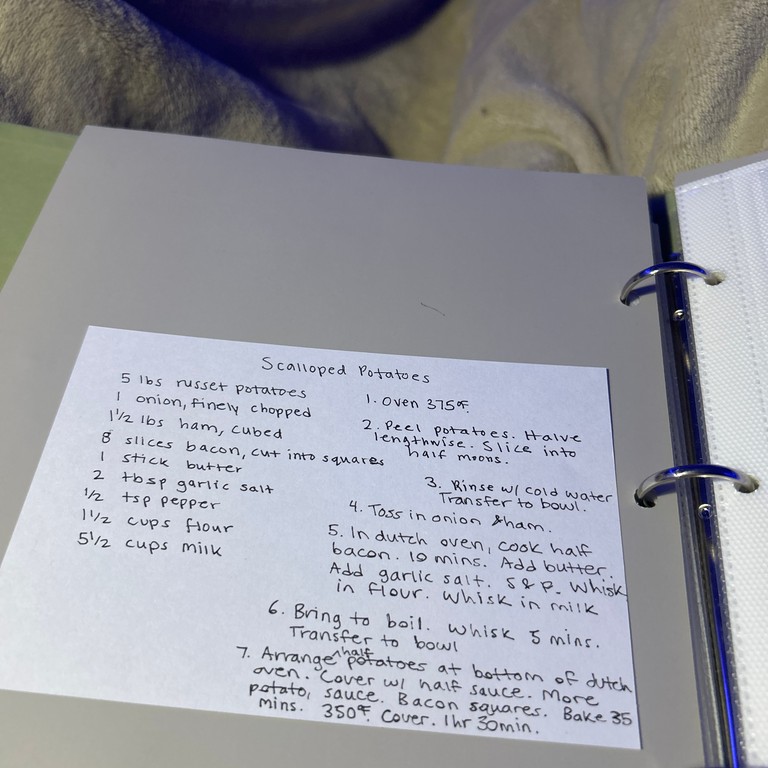 Scalloped Potatoes
5 lbs russet potatoes
1 onion, finely chopped
1 1/2 lbs ham, cubed
8 slices bacon, cut into squares
1 stick butter
2 tbsp garlic salt
1/2 tsp pepper
1 1/2 cups flour
5 1/2 cups milk
1. Oven 375°F.
2. Peel potatoes. Halve
lengthwise. Slice into
half moons.
3. Rinse w/ cold water
Transfer to bowl.
4. Toss in onion & ham.
5. In dutch oven, cook half
bacon. 10 mins. Add butter.
Add garlic salt. S & P. Whisk
in flour. Whisk in milk
6. Bring to boil. Whisk 5 mins.
Transfer to bowl
7. Arrange half potatoes at bottom of dutch
oven. Cover w/ half sauce. More
potato, sauce. Bacon squares. Bake 35
mins. 350°F. Cover. 1hr 30min.